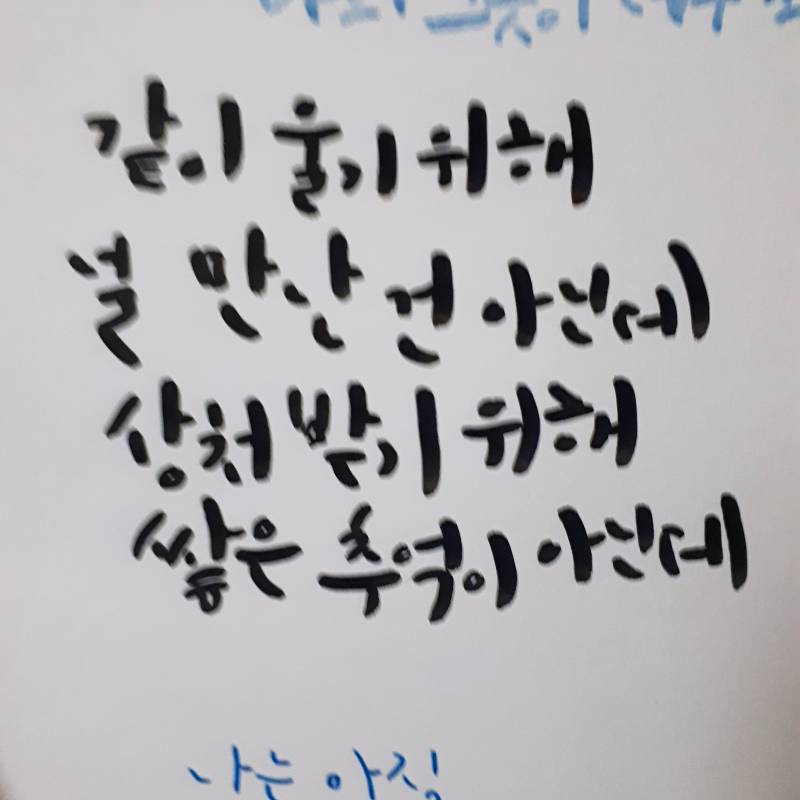 같이 울기 위해
널 만난 건 아닌데
상처 받기 위해
쌓은 추억이 아닌데
나는